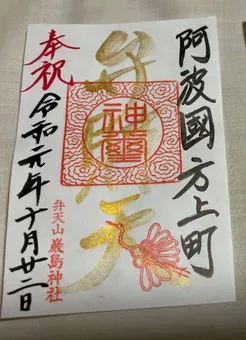 阿波國方上町
弁財天
神璽
奉祝
令和元年十月廿二日
弁天山 厳島神社